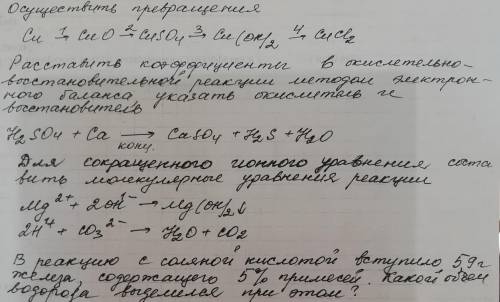 Осуществить превращения
Cu 1→ CuO 2→ CuSO4 3→ Cu(OH)2 4→ CuCl2
Расставить коэффициенты в окислительно-
восстановительной реакции методом электрон-
ного баланса, указать окислитель и
восстановитель
H2SO4 + Ca → CaSO4 + H2S + H2O
конц.
Для сокращенного ионного уравнения соста
вить молекулярные уравнения реакции
Mg2+ + 2OH- → Mg(OH)2↓
2H+ + CO3 2- → H2O + CO2
В реакцию с соляной кислотой вступило 59 г
железа, содержащего 5% примесей. Какой объем
водорода выделился при этом?